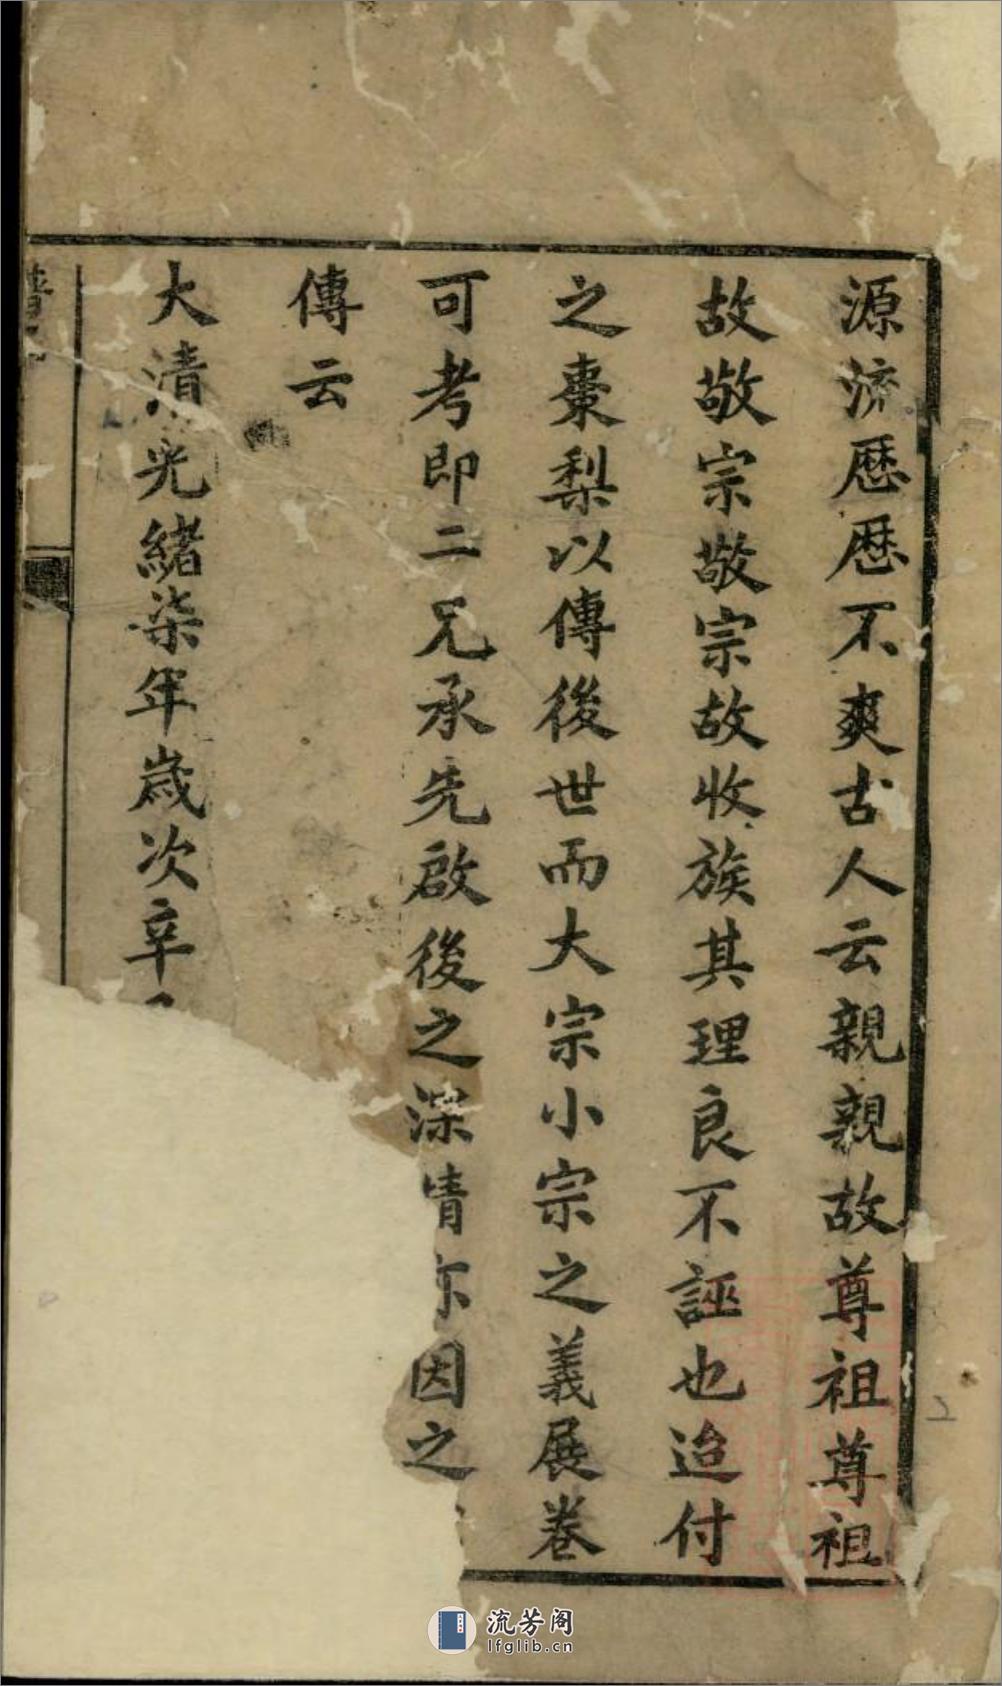 源流厯厯不爽古人云親親故尊祖尊祖
故敬宗敬宗故收族其理良不誣也迨付
之棗梨以傳後世而大宗小宗之義展卷
可考即二兄承先啟後之深情亦因之
傳云
大清光緒柒年歲次辛
流芳阁
lfglib.cn